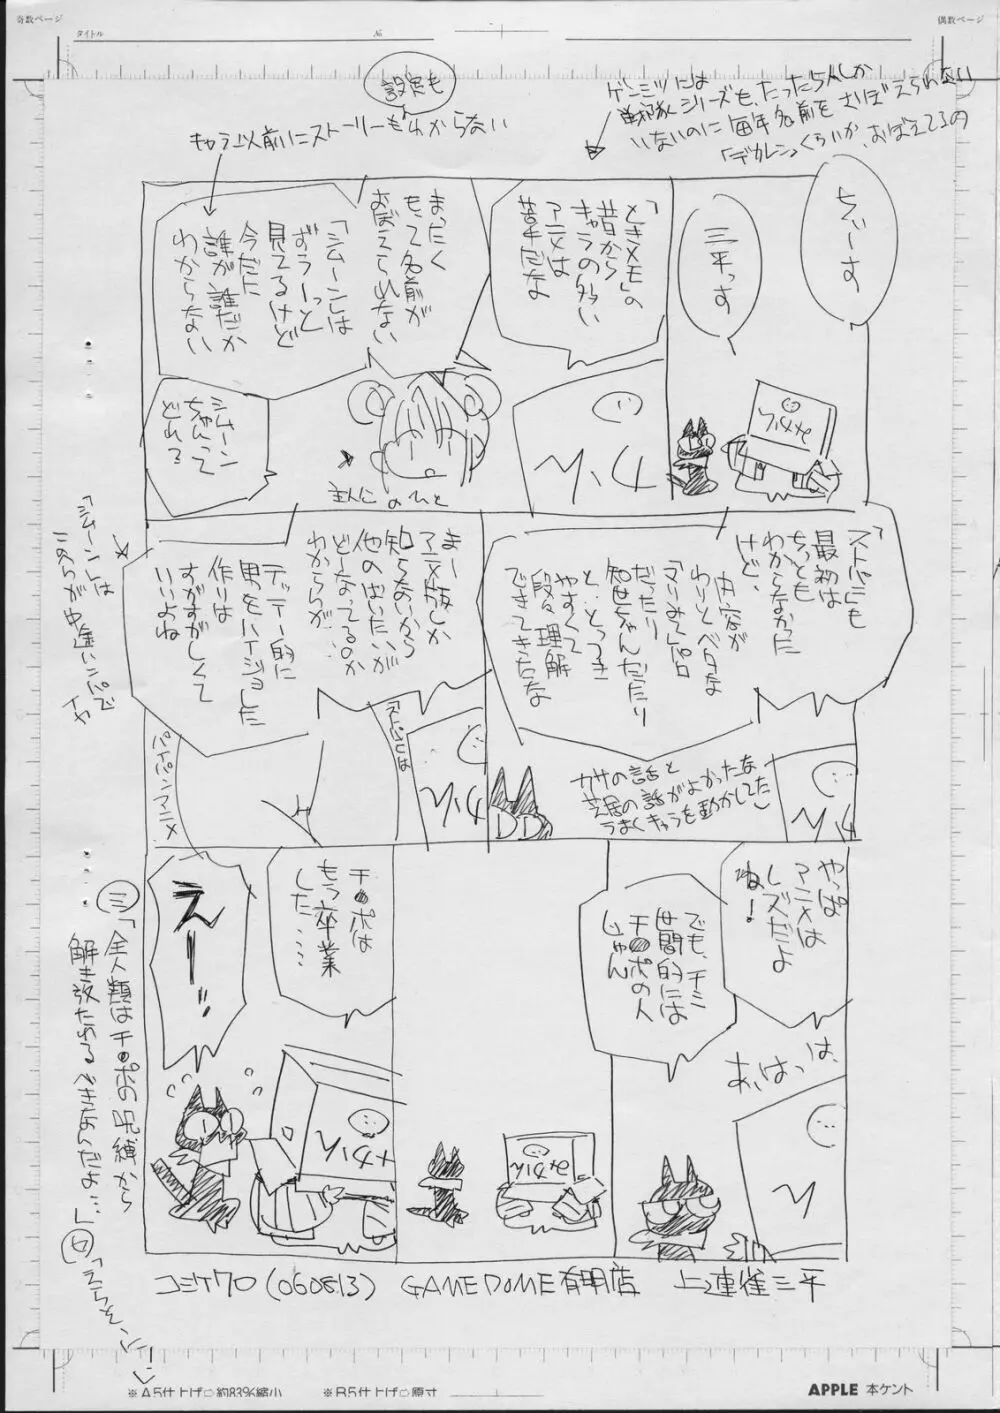 奇数ページ
偶数ページ
タイトル
№
設定も
キャラ以前にストーリーもわからない
ゲンミツには
戦隊シリーズも、たった5人しか
いないのに毎年名前をさぼえられない
「デカレン」くらいか、おぼえてるの
ちぃーす
三平っす
「ときメモ」の
昔から
キャラの多い
アニメは
苦手だな
まったく
もって名前が
おぼえられない
「シムーン」は
ずうーっと
見てるけど
今だに
誰が誰だか
わからない
シムーン
ちゃんって
どれ?
主人じのひと
「ストパニ」も
最初は
ちっとも
わからなかった
けど、
内容が
わりとベタな
「マリみて」パロ
だったり
知世ちゃんだったり
と、とっつき
やすくて
段々理解
できてきたな
カサの話と
芝居の話がよかったな
うまくキャラを動かしてた
まー
アニメ版しか
知らないから
他のはいたいが
どーなってるのか
わからんが…
テッテー的に
男をハイジョした
作りは
すがすがしくて
いいよね
「シムーン」は
このへんが中途ハンパで
イヤ
「ストパニ」は
パイパンアニメ
やっぱ
アニメは
レズだよ
ね!
でも、チミ
世間的には
チ●ポの人
じゃん
あ、はっは、
チ●ポは
もう卒業
した……
えーっ
㊂「全人類はチ●ポの呪縛から
解き放たれるべきなんだよ…」
コミケ70(060813) GAME DOME有明店 上連雀三平
※A5仕上げ□約83%縮小
※B5仕上げ□原寸
APPLE 本ケント